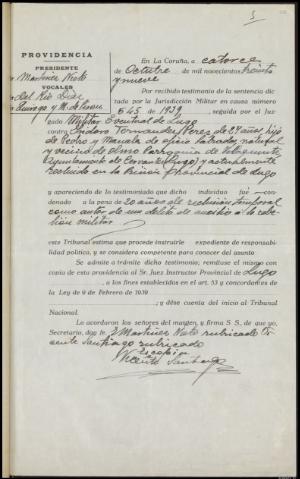 PROVIDENCIA
PRESIDENTE
VOCALES
En La Coruña, a catorce
de Octubre de mil novecientos treinta
y nueve
Por recibido testimonio de la sentencia dic-
tada por la Jurisdicción Militar en causa número
545 de 1939, seguida por el Juz-
gado Militar Eventual de Lugo
contra Isidoro Fernandez Perez de años, hijo
de Pedro y Manuela de oficio labrador, natural
y vecino de parroquia de
Ayuntamiento de Cervantes (Lugo) y actualmente
recluido en la Prisión provincial de Lugo
y apareciendo de lo testimoniado que dicho individuo fué con-
denado a la pena de 20 años de reclusión temporal
como autor de un delito de auxilio a la rebe-
lión militar
este Tribunal estima que procede instruirle expediente de responsabi-
lidad política, y se considera competente para conocer del asunto
Se admite a trámite dicho testimonio; remítase el mismo con
copia de esta providencia al Sr. Juez Instructor Provincial de Lugo
, a los fines establecidos en el art. 53 y concordantes de
la Ley de 9 de Febrero de 1939
; y dése cuenta del inicio al Tribunal
Nacional.
Lo acordaron los señores del margen, y firma S. S., de que yo,
Secretario, doy fe. Martinez Nieto rubricado Vi-
cente Santiago rubricado
Es copia
Vicente Santiago